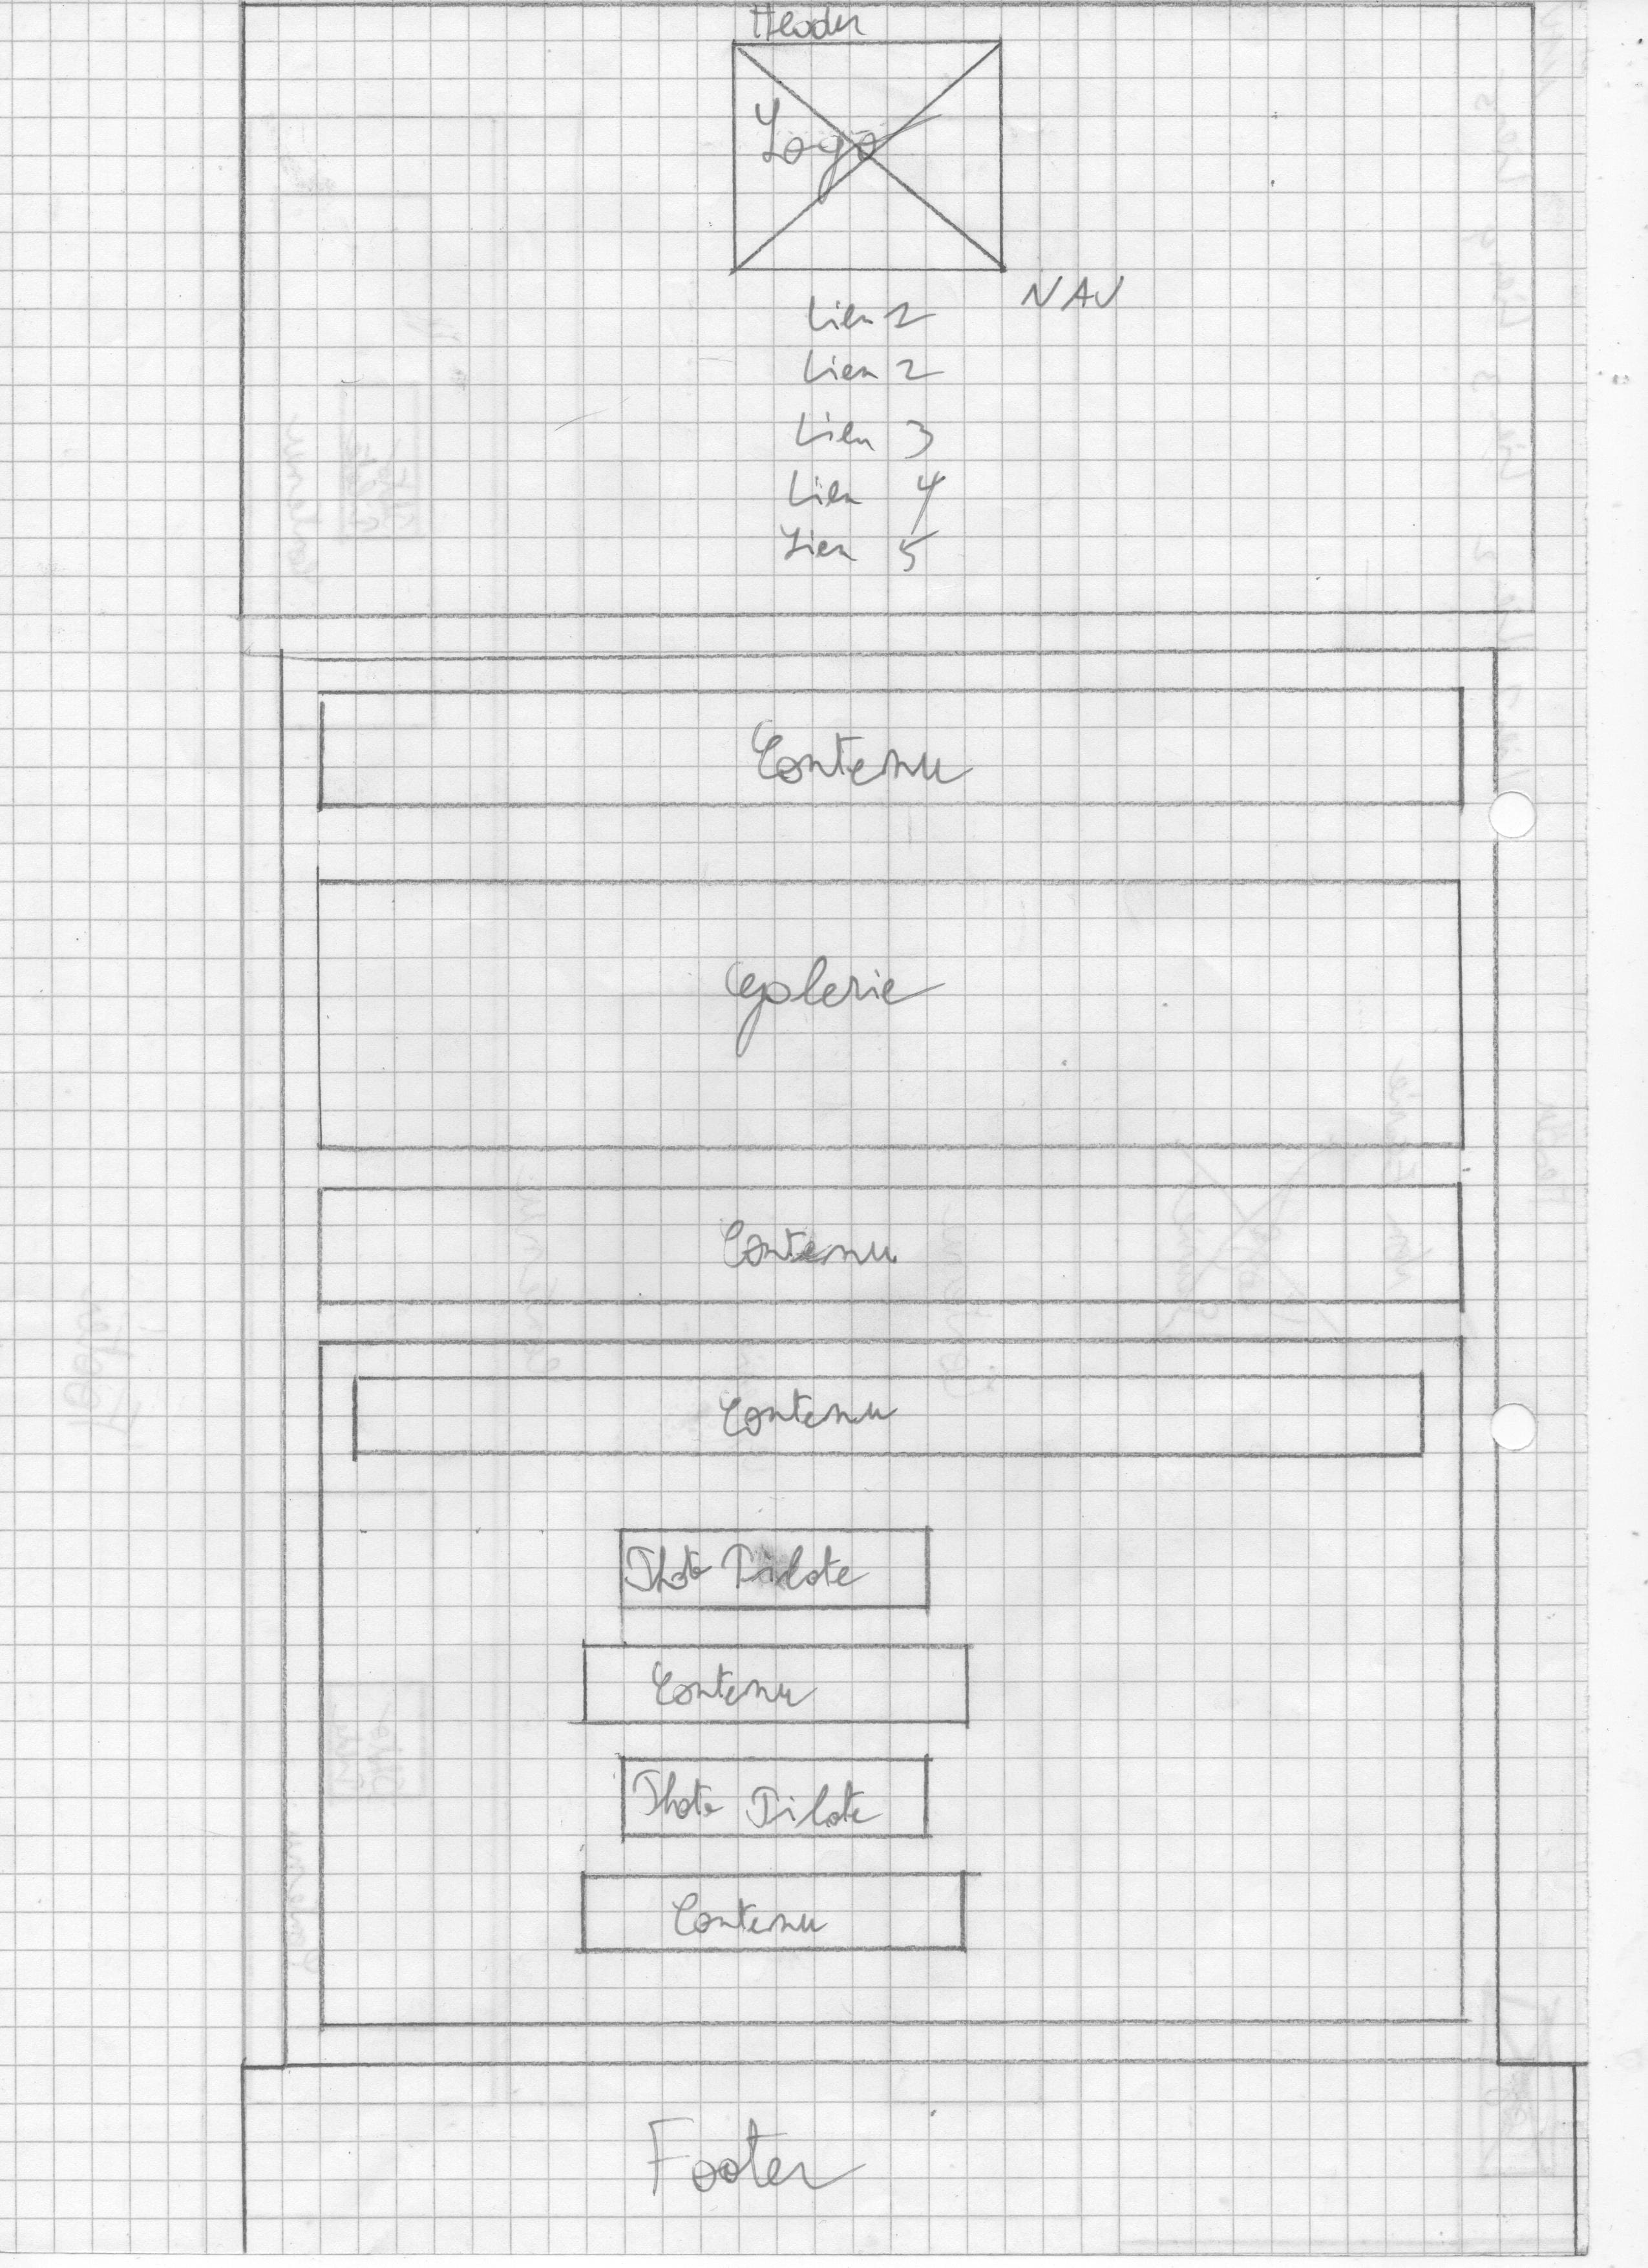 Header
Logo
NAV
Lien 1
Lien 2
Lien 3
Lien 4
Lien 5
Contenu
Galerie
Contenu
Contenu
Photo Pilote
Contenu
Photo Pilote
Contenu
Footer